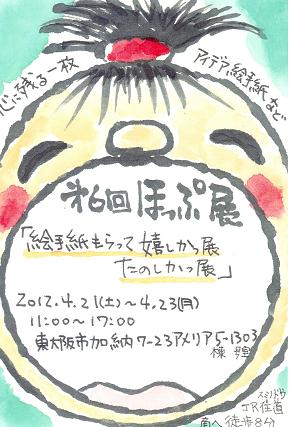 心に残る一枚
アイデア絵手紙など
第6回ほっぷ展
「絵手紙もらって嬉しかっ展
たのしかっ展」
2012.4.21(土)~4.23(月)
11:00~17:00
東大阪市加納7-23アメリア5-1303
棟 号室
スミノドウ
JR住道
南へ徒歩8分